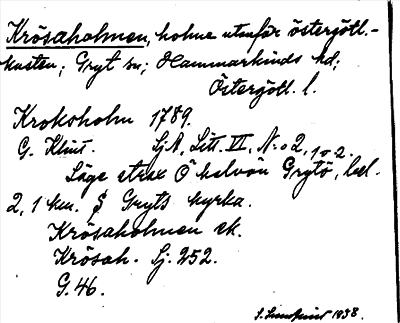 Krösaholmen, holme utanför östergötl.-
kusten; Gryt sn; Hammarkinds hd;
Östergötl. l.
Krokoholm 1789.
G. Klint. SjA, Litt. VI, N:o 2, 1 o 2.
Läge strax Ö halvön Grytö, bel.
2,1 km. S Gryts kyrka.
Krösaholmen ek.
Krösah. Sj. 252.
G. 46.
S. 1938.